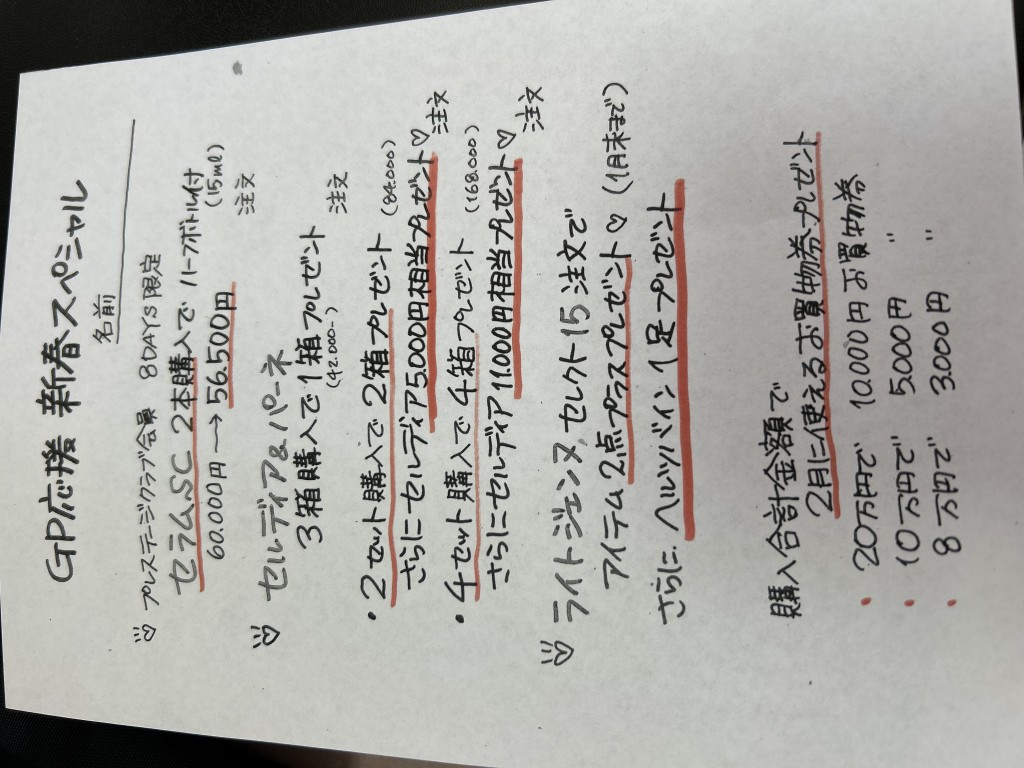 GP応援 新春スペシャル
名前
プレステージクラブ会員 8DAYS限定
セラム、SC 2本購入で ハーフボトル付
(15ml)
60.000円→56.500円 注文
セルディア&パーネ
3箱購入で1箱プレゼント 注文
(42.000-)
・2セット購入で2箱プレゼント (84.000)
さらにセルディア5.000円相当プレゼント♡ 注文
・4セット購入で4箱プレゼント (168.000)
さらにセルディア11.000円相当プレゼント♡ 注文
ライトジェンヌ,セレクト15注文で
アイテム2点プラスプレゼント♡(1月末まで)
さらに ヘルツバイン1足プレゼント
購入合計金額で
2月に使えるお買物券プレゼント
・20万円で 10.000円お買物券
・10万円で 5.000円 〃
・8万円で 3.000円 〃